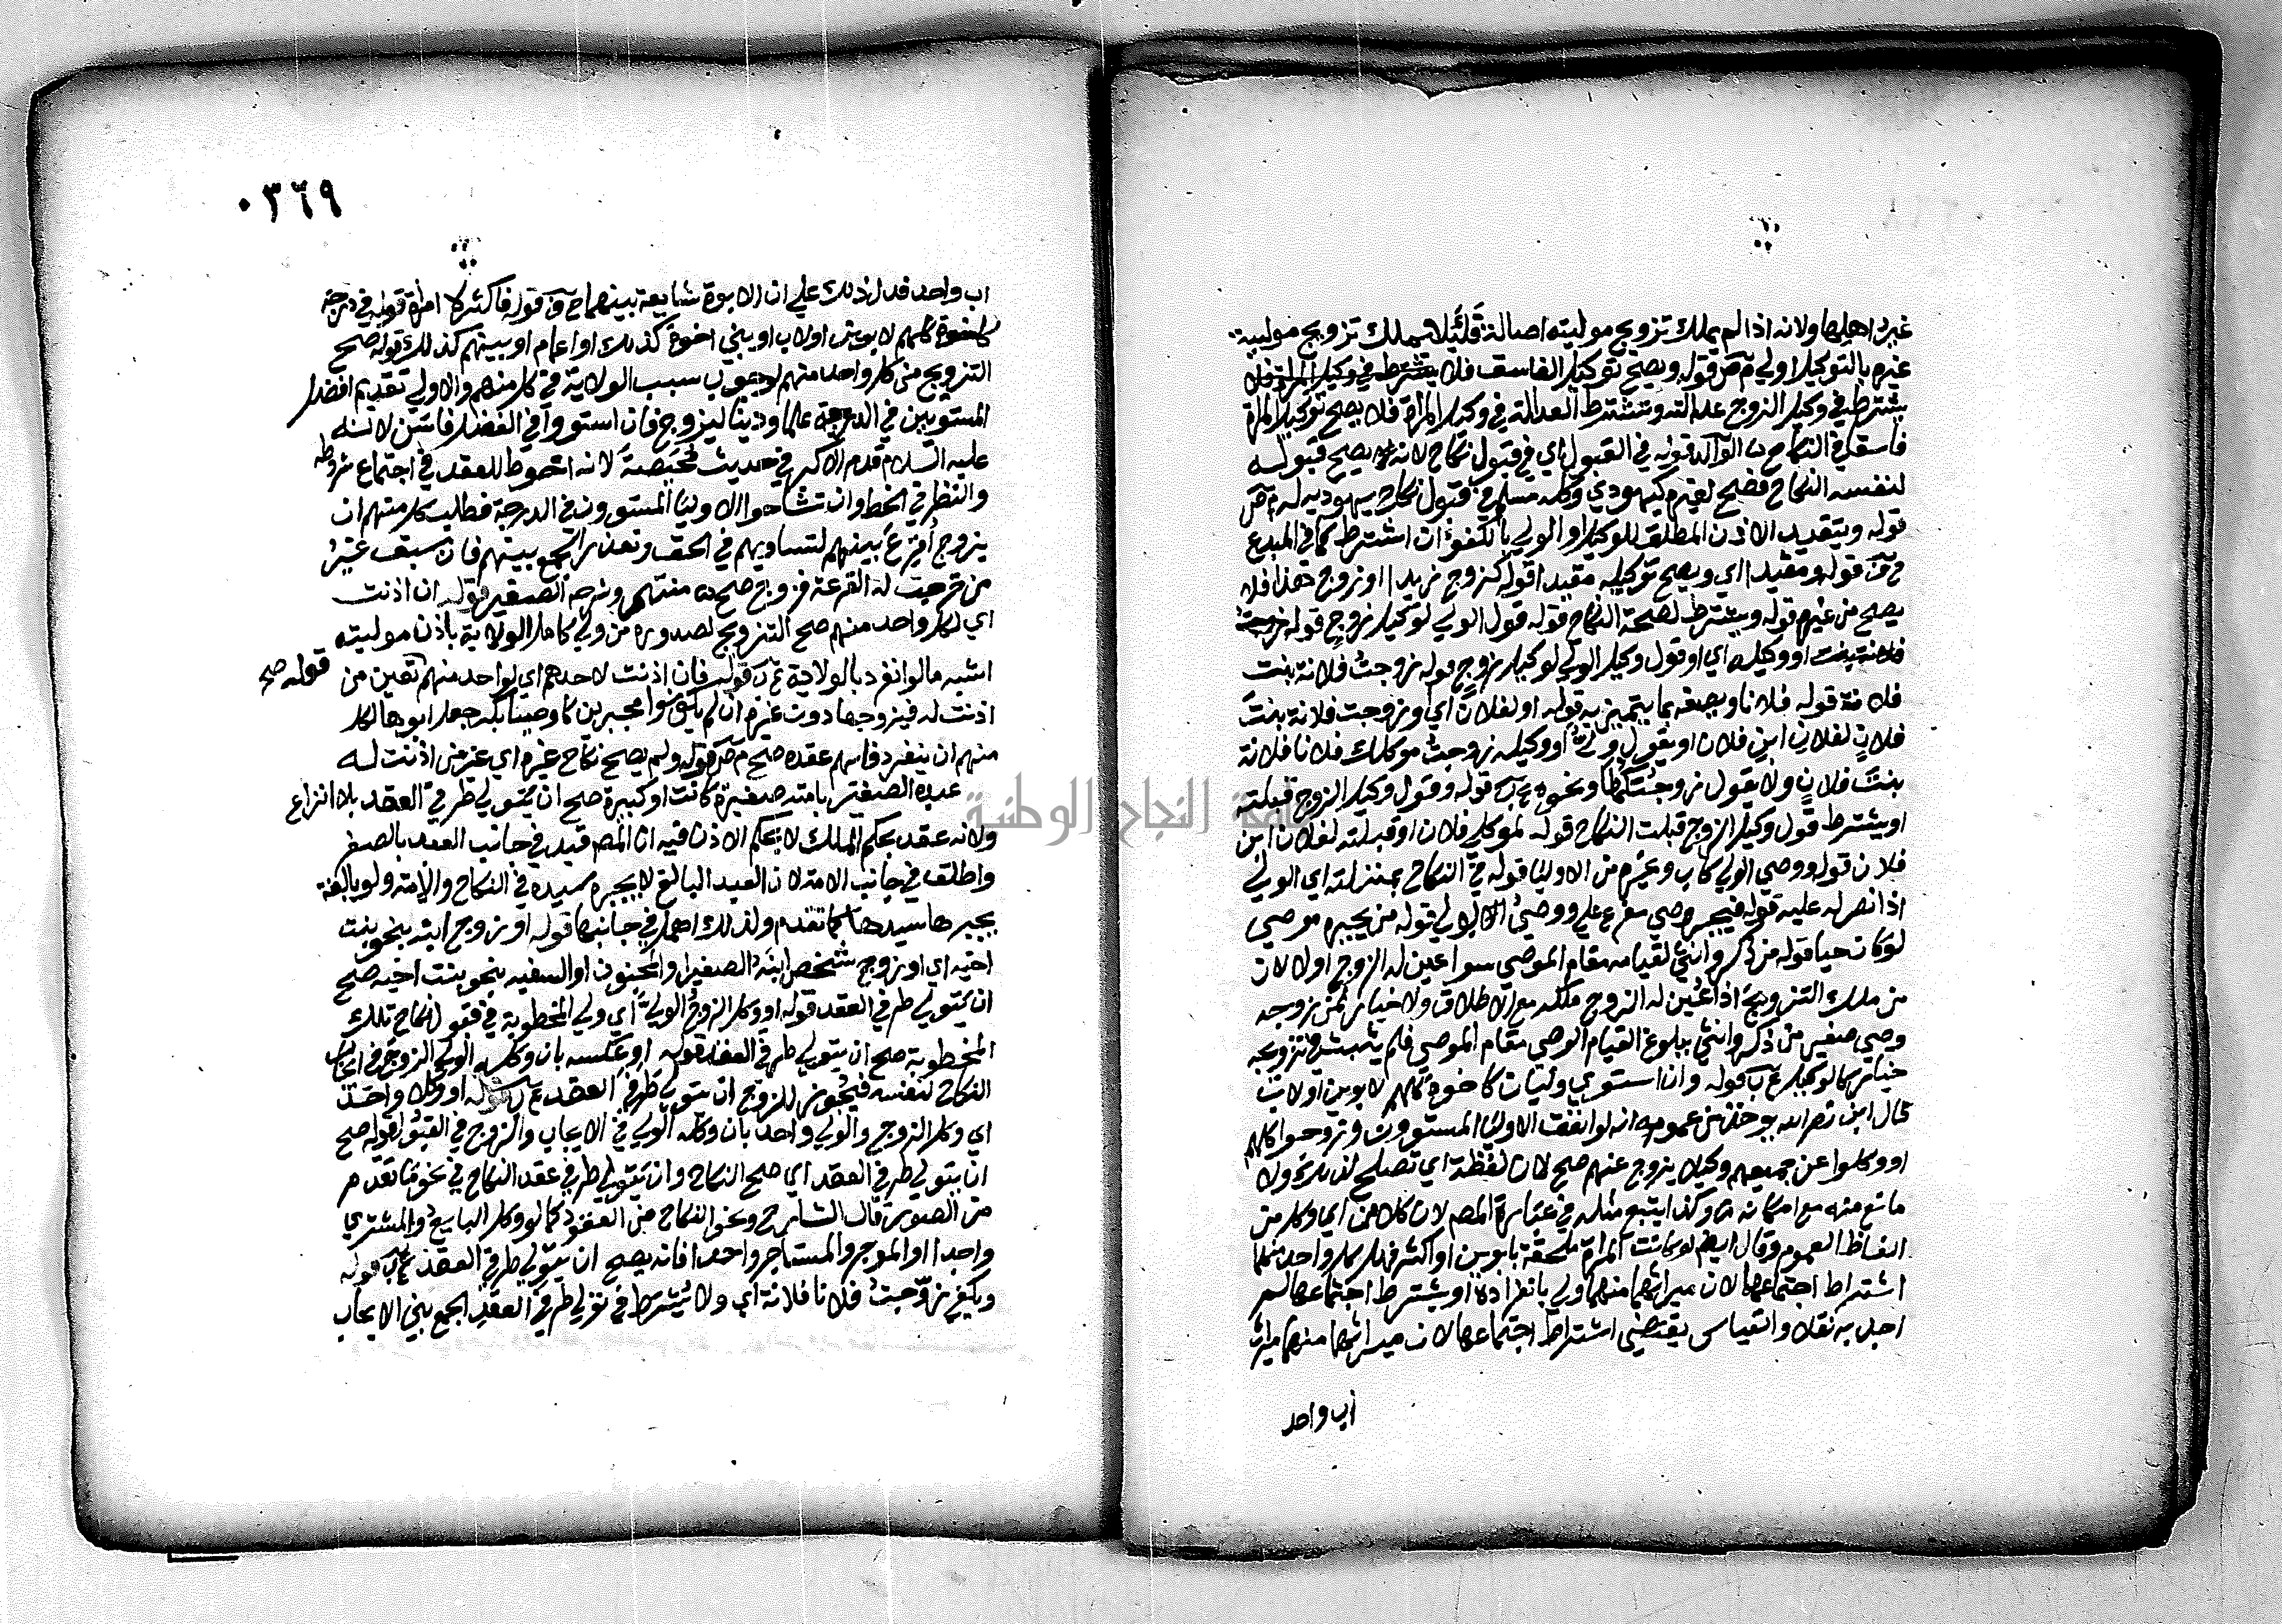 غير اهلها ولانه اذا لم يملك تزويج موليته اصالة فلئلا يملك تزويج مولية
غيره بالتوكيل اولى م ص قوله ويصح توكيل الفاسق فلا يشترط في وكيل المراة فلا
يشترط في وكيل الزوج عدالته وتشترط العدالة في وكيل المراة فلا يصح توكيل المراة
فاسقا في النكاح قوله في القبول اي في قبول نكاح لانه يصح قبوله
لنفسه النكاح فصح لغيره كيهودي وكله مسلم في قبول نكاح يهودية له م ص
قوله ويتقيد الاذن المطلق للوكيل او الولي بالكفؤ ان اشترط كما في المبدع
قوله ومقيدا اي ويصح توكيله مقيدا قوله كزوج زيدا او زوج هذا فلا
يصح من غيره قوله ويشترط لصحة النكاح قوله قول الولي لوكيل زوج قوله زوجت
فلانة بنت او وكيله اي او قول وكيل الولي لوكيل زوج قوله زوجت فلانة بنت
فلانة قوله فلانا ويصفه بما يتميز به قوله او لفلان اي او زوجت فلانة بنت
فلان لفلان ابن فلان او يقول ولي او وكيله زوجت موكلك فلانا فلانة
بنت فلان ولا يقول زوجتكها ونحوه ع ب قوله وقول وكيل الزوج قبلته
او يشترط قول وكيل الزوج قبلت النكاح قوله لموكلي فلان او قبلته لفلان ابن
فلان قوله ووصي الولي كاب وغيره من الاوليا قوله في النكاح بمنزلته اي الولي
اذا نص له عليه قوله فيجبر وصي مفرع على ووصي الولي قوله من يجبره موصي
لو كان حيا قوله من ذكر وانثى لقيامه مقام الموصي سوا عين له الزوج او لا لان
من ملك التزويج اذا عين له الزوج ملكه مع الاطلاق ولا خيار لمن زوجه
وصي صغير من ذكر وانثى ببلوغ لقيام الوصي مقام الموصي فلم يثبت في تزويجه
خيار كالوكيل ع ب قوله وان استوى وليان كاخوة كلهم لابوين او لاب
قال ابن نصر الله يوخذ من عمومه انه لو اتفقت الاوليا المستوون وزوجوا كلهم
او وكلوا عن جميعهم وكيلا يزوج عنهم صح لان لفظة اي تصلح لذلك ولا
مانع منه مع امكانه وكذا يتبع مثله في عبارة المص لان كلا من اي وكل من
الفاظ العموم وقال ايضا لو كانت المراة ملحقة بابوين او اكثر فهل كل واحد منهما
اشتراط اجتماعهما لان ميراثهما منهما ولي بانفراده او يشترط اجتماعهما لم
اجد به نقلا والقياس يقتضي اشتراط اجتماعهما لان ميراثهما منهما ميراث
اب واحد
٠٣٦٩
اب واحد فدل ذلك على ان الابوة شايعة بينهما قوله فاكثر لامراة قوله في درجة
كاخوة كلهم لابوين او لاب او بني اخوة كذلك او اعمام او بنيهم كذلك قوله صح
التزويج من كل واحد منهم لوجود سبب الولاية في كل منهم والاولى تقديم افضل
المستويين في الدرجة علما ودينا ليزوج فان استووا في الفضل فاسن لانه
عليه السلام قدم الاكبر في حديث محيصة لانه احوط للعقد في اجتماع شروطه
والنظر في الحظ وان تشاحوا الاوليا المستوون في الدرجة فطلب كل منهم ان
يزوج اقرع بينهم لتساويهم في الحق وتعذر الجمع بينهم فان سبق غير
من خرجت له القرعة فزوج صح منتهى وشرحه الصغير قوله ان اذنت
اي لكل واحد منهم صح التزويج لصدوره من ولي كامل الولاية باذن موليته
اشبه ما لو انفرد بالولاية ع ب قوله فان اذنت لاحدهم اي لواحد منهم تعين من قوله صح
اذنت له فيزوجها دون غيره ان لم يكونوا مجبرين كاوصيا بكر جعل ابوها لكل
منهم ان ينفرد فايهم عقده صح م ص قوله ولم يصح نكاح غيره اي غير من اذنت له
عبده الصغير بامته صغيرة كانت او كبيرة صح ان يتولى طرفي العقد بلا نزاع
ولانه عقد بحكم الملك لا بحكم الاذن فيه ان المص قيد في جانب العبد بالصغر
واطلق في جانب الامة لان العبد البالغ لا يجبره سيده في النكاح والامة ولو بالغة
يجبرها سيدها كما تقدم ولذلك اهمل في جانبها قوله او زوج ابنه بنحو بنت
اخيه اي او زوج شخص ابنه الصغير او المجنون او السفيه بنحو بنت اخيه صح
ان يتولى طرفي العقد قوله او وكل الزوج الولي اي ولي المخطوبة في قبول نكاح تلك
المخطوبة صح ان يتولى طرفي العقد قوله او عكسه بان وكل الولي الزوج في ايجاب
النكاح لنفسه فيجوز للزوج ان يتولى طرفي العقد ع ب قوله او وكلا واحدا
اي وكل الزوج والولي واحدا بان وكله الولي في الايجاب والزوج في القبول قوله صح
ان يتولى طرفي العقد اي صح النكاح وان يتولى طرفي عقد النكاح في نحو ما تقدم
من الصور قال الشارح ونحو النكاح من العقود كما لو وكل البايع والمشتري
واحدا او الموجر والمستاجر واحدا فانه يصح ان يتولى طرفي العقد ع ب قوله
ويكفي زوجت فلانا فلانة اي ولا يشترط في تولي طرفي العقد الجمع بين الايجاب
جامعة النجاح الوطنية